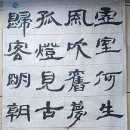 虛室何生
風吹舊夢
孤燈見古
歸明朝